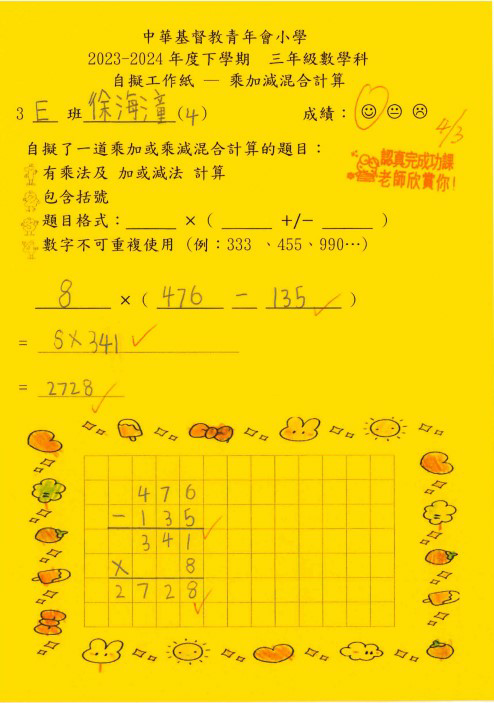 中華基督教青年會小學
2023-2024 年度下學期 三年級數學科
自擬工作紙 — 乘加減混合計算
3 E 班 徐海潼(4) 成績：☺ 😐 ☹
4/3
自擬了一道乘加或乘減混合計算的題目：
認真完成功課
老師欣賞你！
有乘法及 加或減法 計算
包含括號
題目格式：______ × ( ______ +/− ______ )
數字不可重複使用 (例：333 、455、990…)
8 × ( 476 − 135 )
= 8×341
= 2728
476
−135
341
× 8
2728